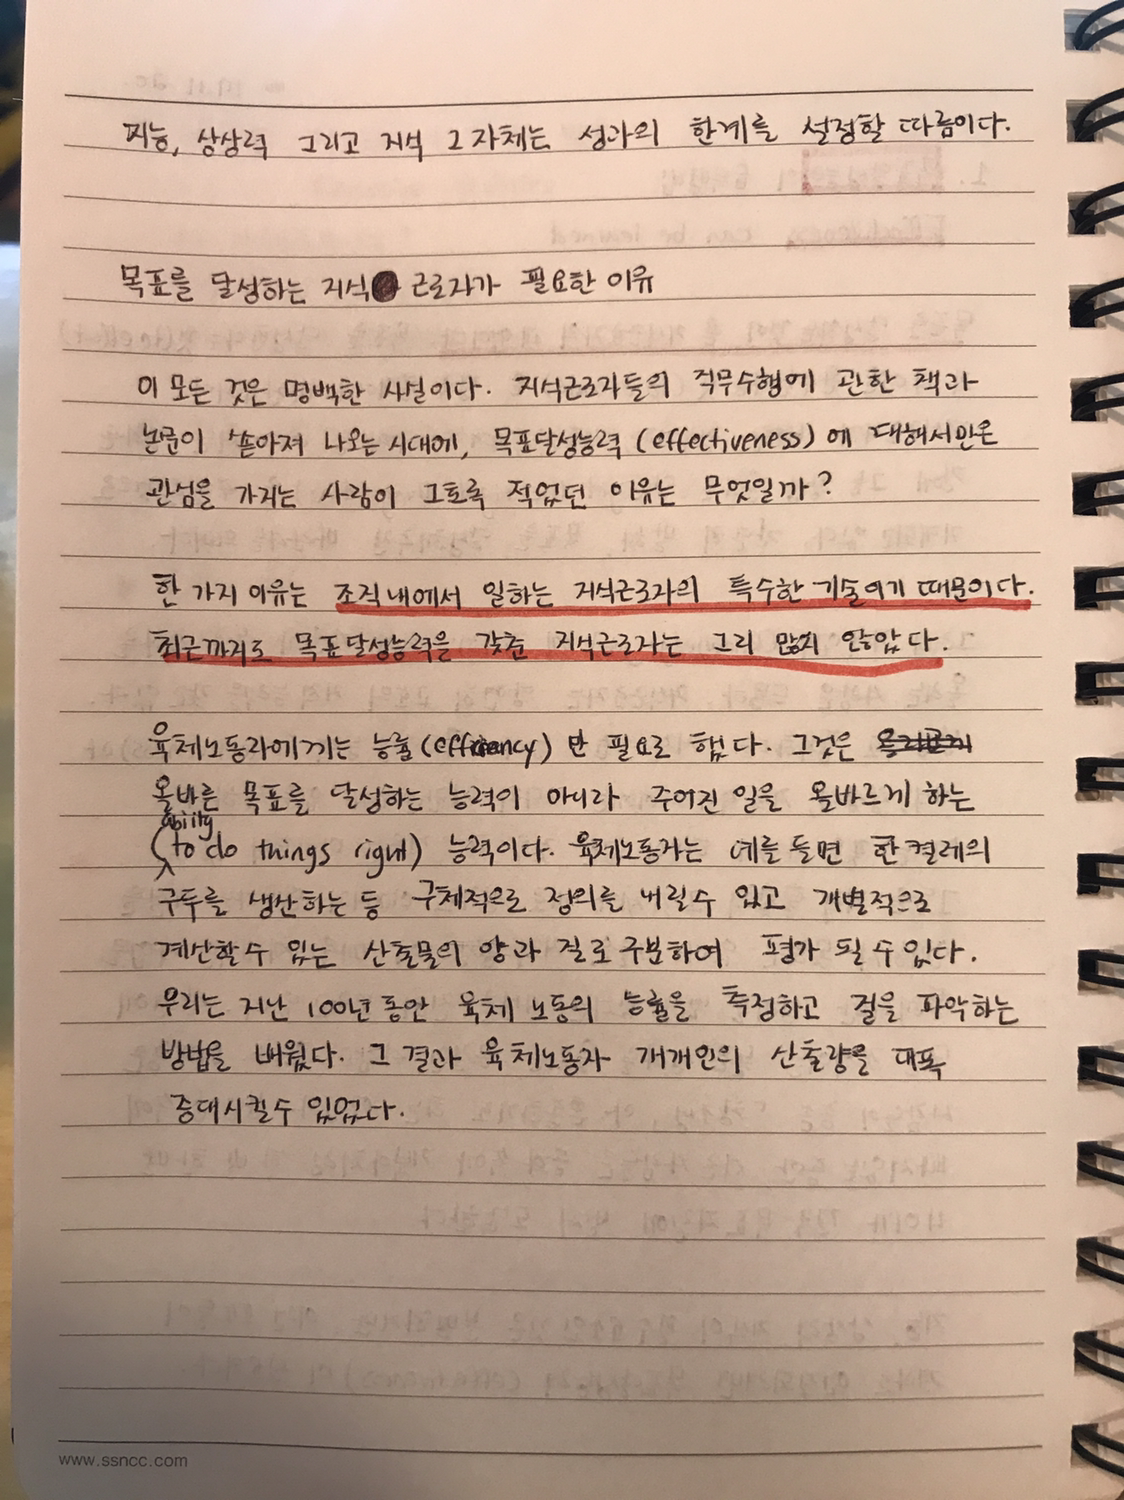 지능, 상상력 그리고 지식 그 자체는 성과의 한계를 설정할 따름이다.
목표를 달성하는 지식 근로자가 필요한 이유
이 모든 것은 명백한 사실이다. 지식근로자들의 직무수행에 관한 책과
논문이 쏟아져 나오는 시대에, 목표달성능력 (effectiveness) 에 대해서만은
관심을 가지는 사람이 그토록 적었던 이유는 무엇일까?
한 가지 이유는 조직내에서 일하는 지식근로자의 특수한 기술이기 때문이다.
최근까지도 목표달성능력을 갖춘 지식근로자는 그리 많지 않았다.
육체노동자에게는 능률(efficiency) 만 필요로 했다. 그것은
올바른 목표를 달성하는 능력이 아니라 주어진 일을 올바르게 하는
(ability to do things right) 능력이다. 육체노동자는 예를 들면 한 켤레의
구두를 생산하는 등 구체적으로 정의를 내릴수 있고 개별적으로
계산할수 있는 산출물의 양과 질로 구분하여 평가 될 수 있다.
우리는 지난 100년 동안 육체 노동의 능률을 측정하고 질을 파악하는
방법을 배웠다. 그 결과 육체노동자 개개인의 산출량을 대폭
증대시킬수 있었다.
www.ssncc.com